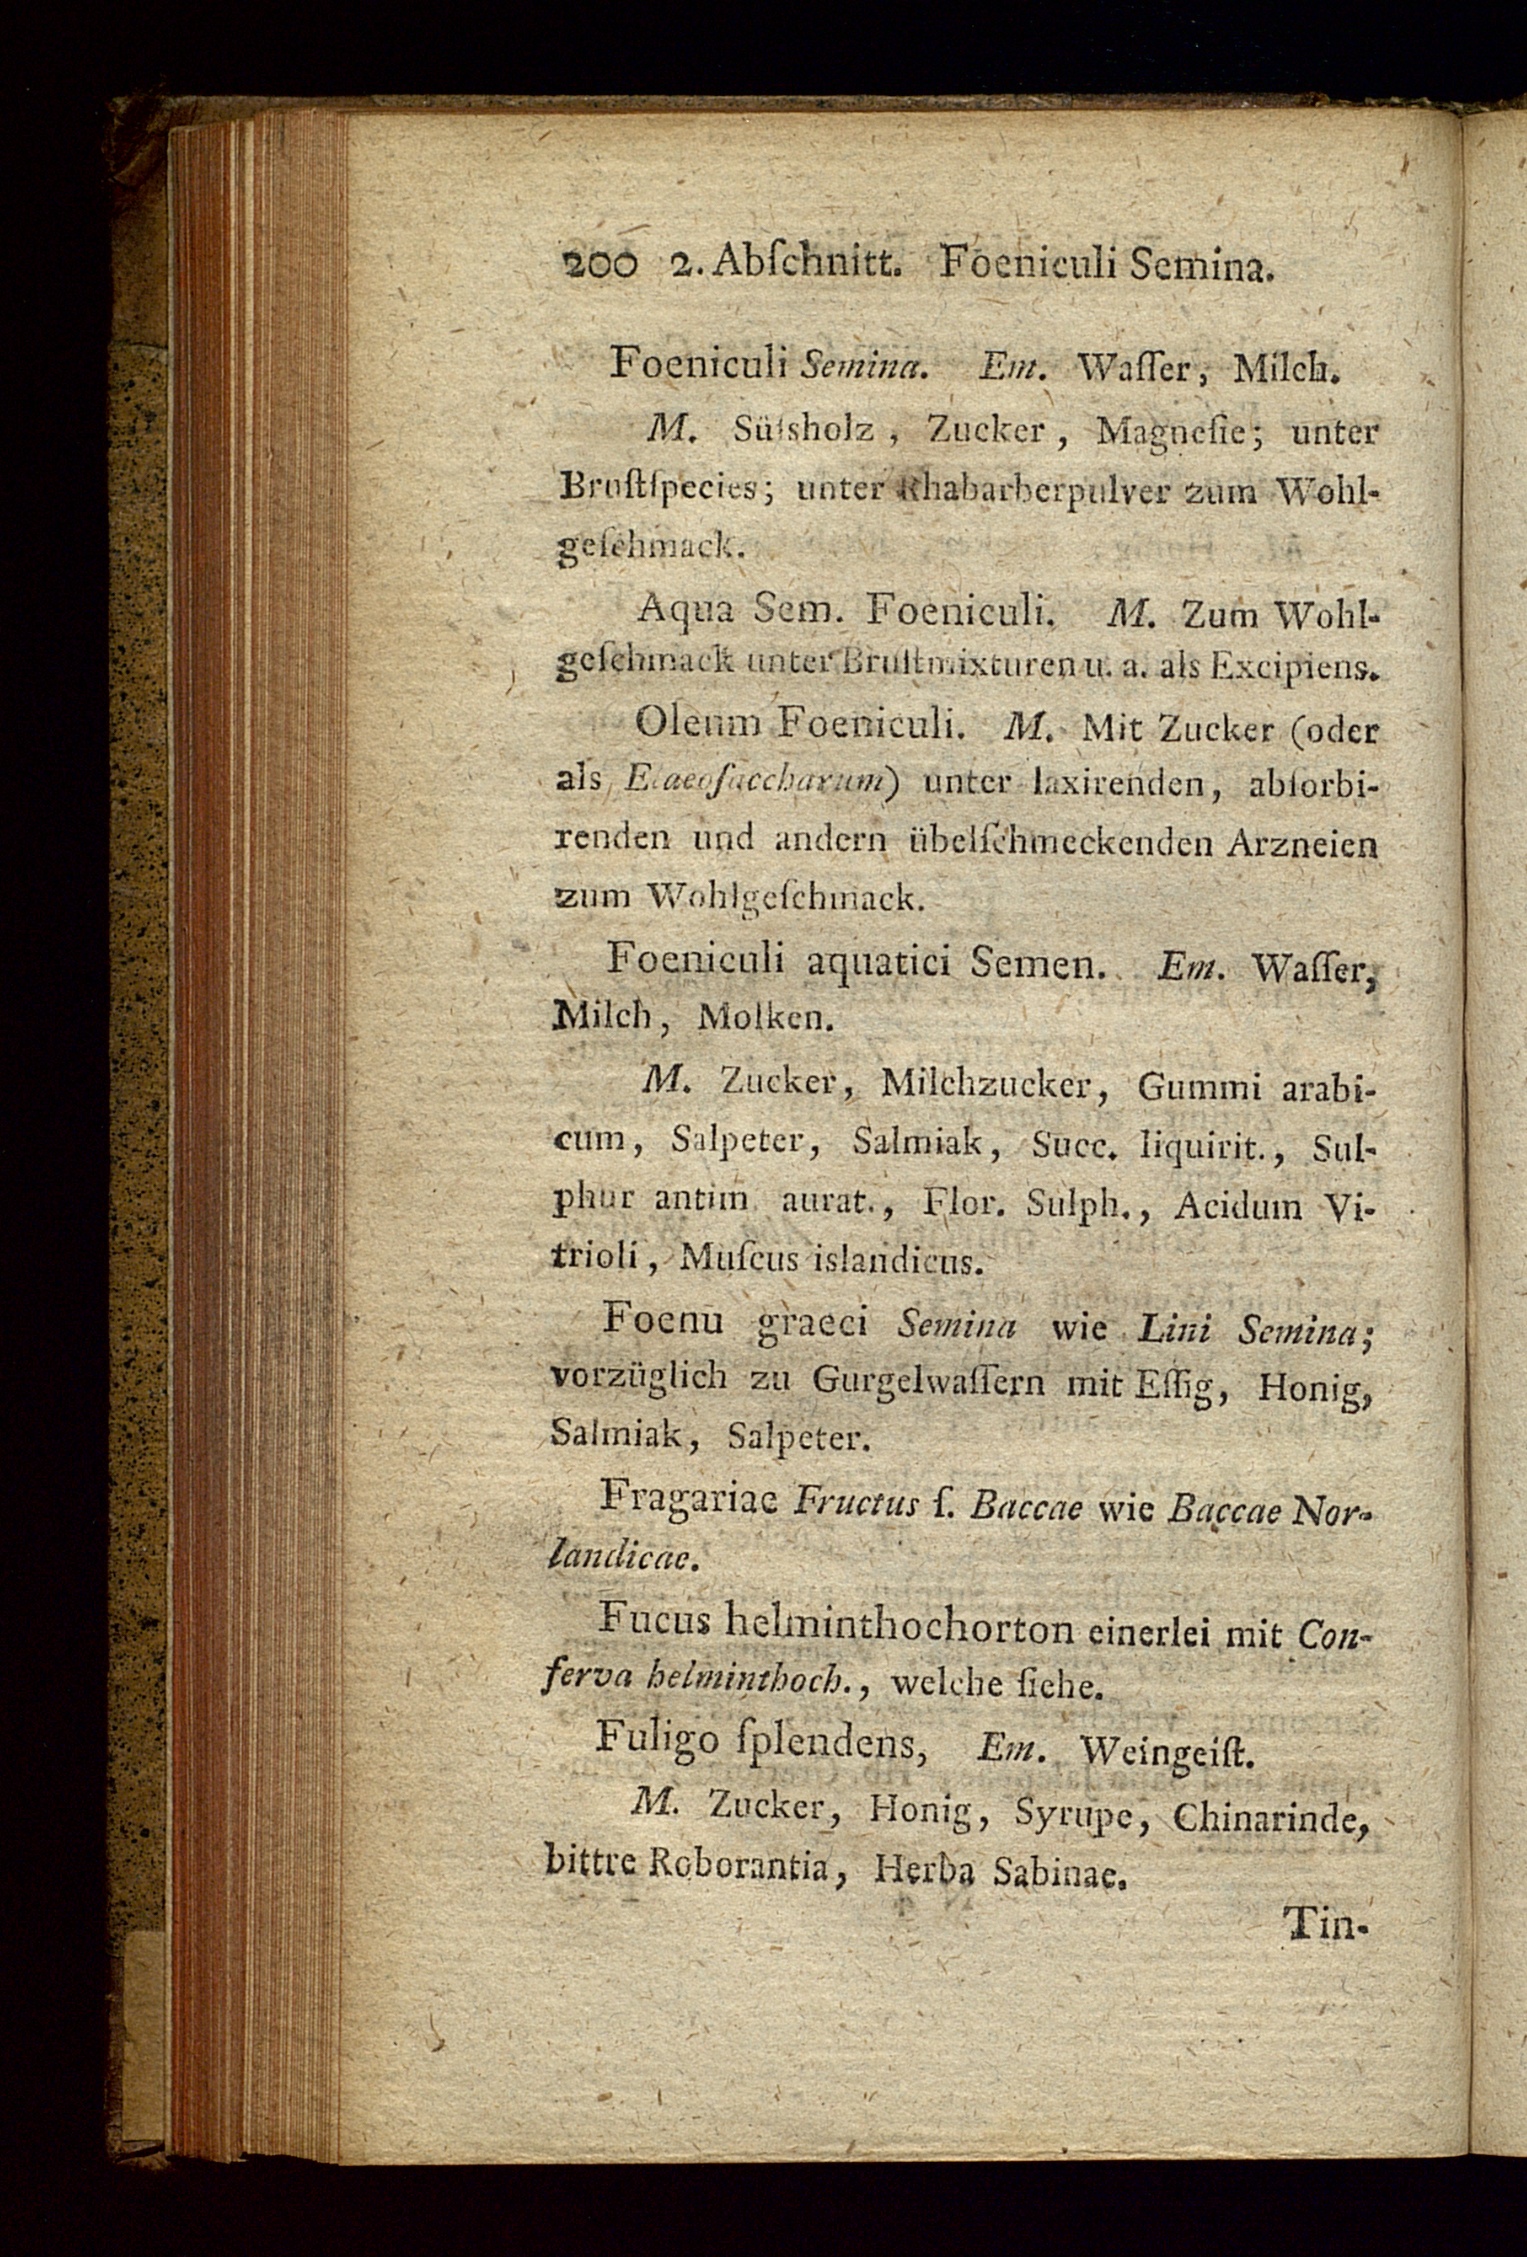 200 2. Abſchnitt. Foeniculi Semina.
Foeniculi Semina. Em. Waſſer, Milch.
M. Süſsholz, Zucker, Magneſie; unter
Bruſtſpecies; unter Rhabarberpulver zum Wohl-
geſchmack.
Aqua Sem. Foeniculi. M. Zum Wohl-
geſchmack unter Bruſtmixturen u. a. als Excipiens.
Oleum Foeniculi. M. Mit Zucker (oder
als Elaeoſaccharum) unter laxirenden, abſorbi-
renden und andern übelſchmeckenden Arzneien
zum Wohlgeſchmack.
Foeniculi aquatici Semen. Em. Waſſer,
Milch, Molken.
M. Zucker, Milchzucker, Gummi arabi-
cum, Salpeter, Salmiak, Succ. liquirit., Sul-
phur antim aurat., Flor. Sulph., Acidum Vi-
trioli, Muſcus islandicus.
Foenu graeci Semina wie Lini Semina;
vorzüglich zu Gurgelwaſſern mit Eſſig, Honig,
Salmiak, Salpeter.
Fragariae Fructus ſ. Baccae wie Baccae Nor-
landicae.
Fucus helminthochorton einerlei mit Con-
ferva helminthoch., welche ſiehe.
Fuligo ſplendens, Em. Weingeiſt.
M. Zucker, Honig, Syrupe, Chinarinde,
bittre Roborantia, Herba Sabinae.
Tin-